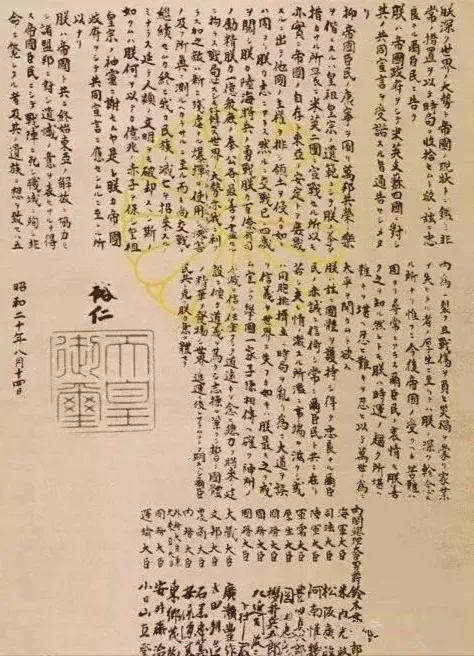 朕深ク世界ノ大勢ト帝國ノ現狀トニ鑑ミ非
常ノ措置ヲ以テ時局ヲ收拾セムト欲シ茲ニ忠
良ナル爾臣民ニ告ク
朕ハ帝國政府ヲシテ米英支蘇四國ニ對シ
其ノ共同宣言ヲ受諾スル旨通告セシメタリ
抑帝國臣民ノ康寧ヲ圖リ萬邦共榮ノ樂
ヲ偕ニスルハ皇祖皇宗ノ遺範ニシテ朕ノ拳々
措カサル所曩ニ米英二國ニ宣戰セル所以モ
亦實ニ帝國ノ自存ト東亞ノ安定トヲ庶幾
スルニ出テ他國ノ主權ヲ排シ領土ヲ侵スカ如キ
ハ固ヨリ朕カ志ニアラス然ルニ交戰已ニ四歲
ヲ閱シ朕カ陸海將兵ノ勇戰朕カ百僚有司
ノ勵精朕カ一億衆庶ノ奉公各最善ヲ盡セ
ルニ拘ラス戰局必スシモ好轉セス世界ノ大勢亦我ニ利
アラス加之敵ハ新ニ殘虐ナル爆彈ヲ使用シテ
慘害ノ及フ所眞ニ測ルヘカラサルニ至ル而モ尚交戰ヲ
繼續セムカ終ニ我カ民族ノ滅亡ヲ招來スル
ノミナラス延テ人類ノ文明ヲモ破却スヘシ斯ノ
如クムハ朕何ヲ以テカ億兆ノ赤子ヲ保シ皇祖
皇宗ノ神靈ニ謝セムヤ是レ朕カ帝國
政府ヲシテ共同宣言ニ應セシムルニ至レル所
以ナリ
朕ハ帝國ト共ニ終始東亞ノ解放ニ協力セ
ル諸盟邦ニ對シ遺憾ノ意ヲ表セサルヲ得
ス帝國臣民ニシテ戰陣ニ死シ職域ニ殉シ非
命ニ斃レタル者及其ノ遺族ニ想ヲ致セハ五
內爲ニ裂ク且戰傷ヲ負ヒ災禍ヲ蒙リ家業
ヲ失ヒタル者ノ厚生ニ至リテハ朕ノ深ク軫念スル
所ナリ惟フニ今後帝國ノ受クヘキ苦難ハ
固ヨリ尋常ニアラス爾臣民ノ衷情モ朕善
ク之ヲ知ル然レトモ朕ハ時運ノ趨ク所堪ヘ
難キヲ堪ヘ忍ヒ難キヲ忍ヒ以テ萬世ノ爲ニ
太平ヲ開カムト欲ス
朕ハ茲ニ國體ヲ護持シ得テ忠良ナル爾臣
民ノ赤誠ニ信倚シ常ニ爾臣民ト共ニ在リ
若シ夫レ情ノ激スル所濫ニ事端ヲ滋クシ或ハ
同胞排擠互ニ時局ヲ亂リ爲ニ大道ヲ誤
リ信義ヲ世界ニ失フカ如キハ朕最モ之ヲ戒ム
宜シク擧國一家子孫相傳ヘ確ク神州ノ
不滅ヲ信シ任重クシテ道遠キヲ念ヒ總力ヲ將來ノ建
設ニ傾ケ道義ヲ篤クシ志操ヲ鞏クシ誓テ國體
ノ精華ヲ發揚シ世界ノ進運ニ後レサラムコトヲ期スヘシ爾臣
民其レ克ク朕カ意ヲ體セヨ
裕仁
天皇御璽
昭和二十年八月十四日
內閣總理大臣男爵鈴木貫太郎
海軍大臣 米內光政
司法大臣 松阪廣政
陸軍大臣 阿南惟幾
軍需大臣 豊田貞次郎
厚生大臣 岡田忠彦
國務大臣 櫻井兵五郎
國務大臣 左近司政三
國務大臣 下村宏
大藏大臣 廣瀨豊作
文部大臣 太田耕造
農商大臣 石黑忠篤
內務大臣 安倍源基
外務大臣兼大東亞大臣 東郷茂德
國務大臣 安井藤治
運輸大臣 小日山直登